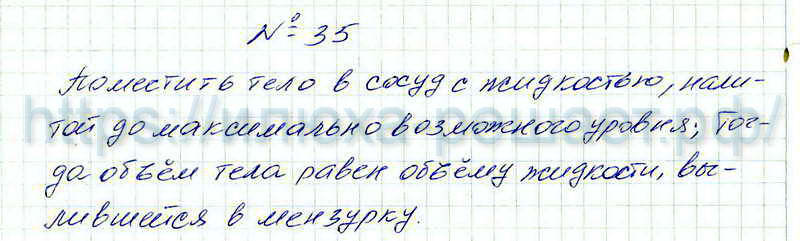 № 35
Поместить тело в сосуд с жидкостью, нали-
той до максимально возможного уровня; Тог-
да объём тела равен объёму жидкости, вы-
лившейся в мензурку.